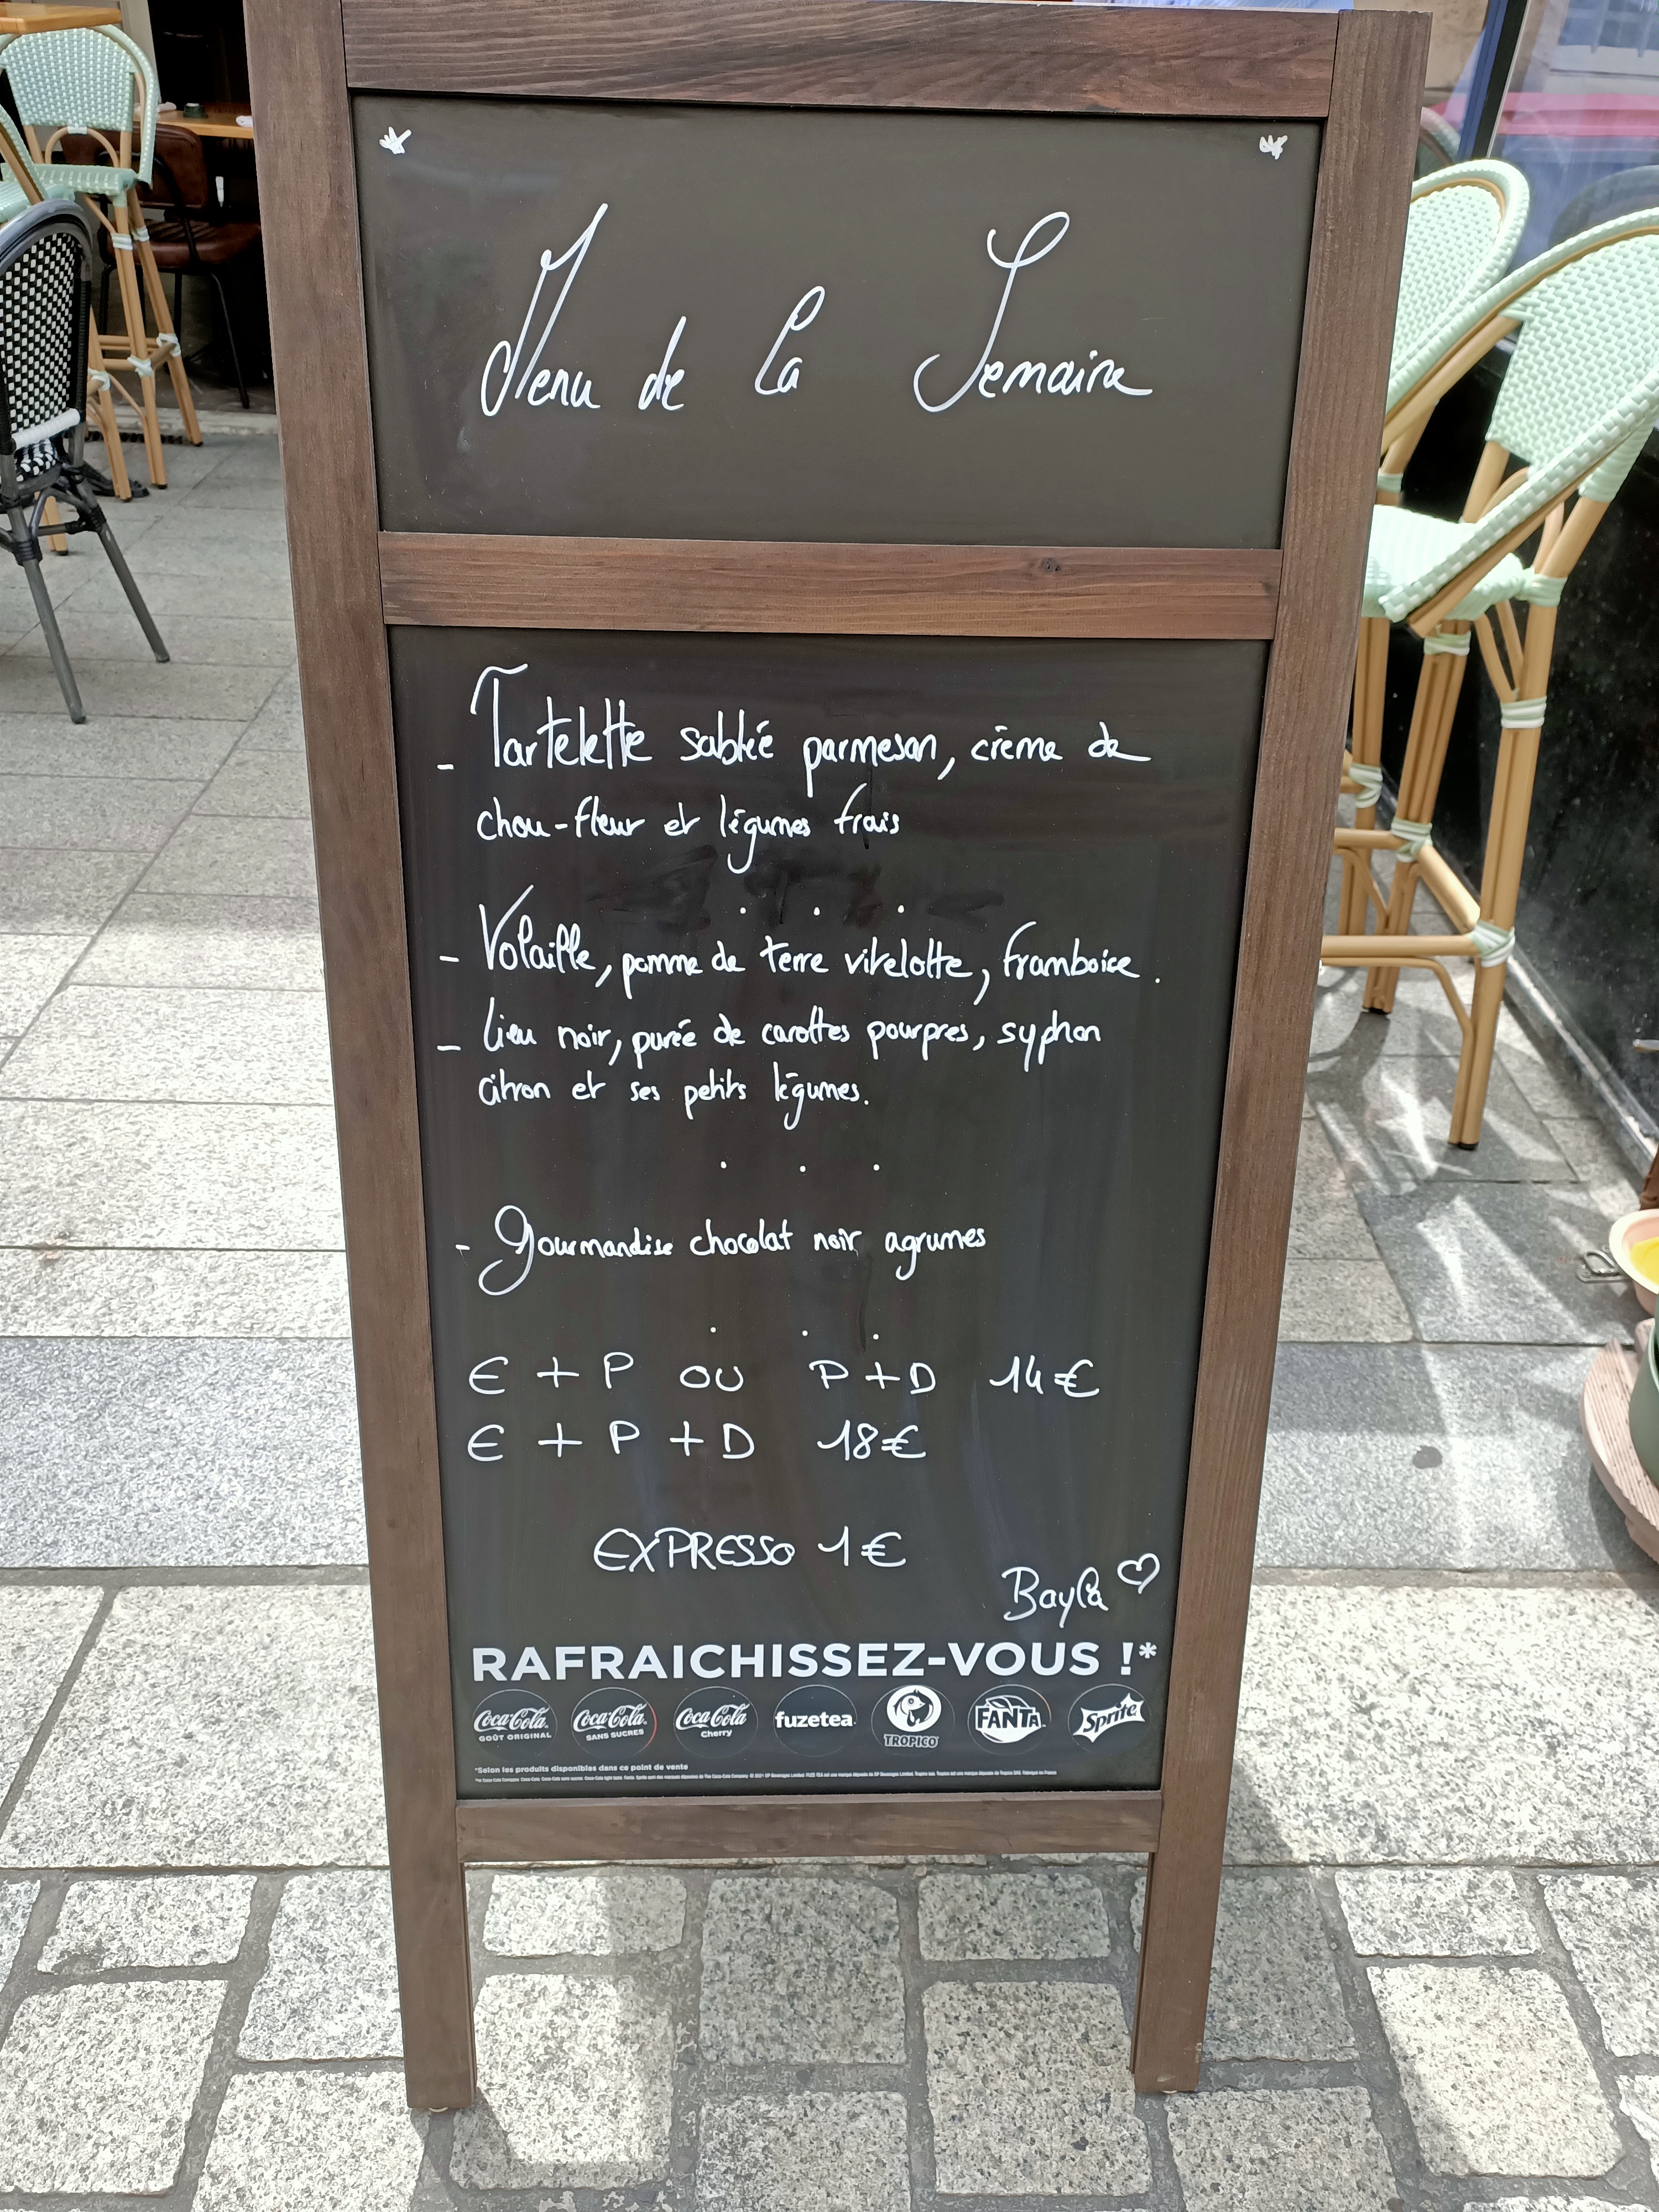 Menu de la Semaine
- Tartelette sablée parmesan, crème de
chou-fleur et légumes frais
. . .
- Volaille, pomme de terre vitelotte, framboise.
- Lieu noir, purée de carottes pourpres, syphon
citron et ses petits légumes.
. . .
- Gourmandise chocolat noir agrumes
. . .
E + P OU P + D 14€
E + P + D 18€
EXPRESSO 1€
Bayla ♡
RAFRAICHISSEZ-VOUS !*
Coca-Cola GOÛT ORIGINAL Coca-Cola SANS SUCRES Coca-Cola Cherry fuzetea TROPICO FANTA Sprite
*Selon les produits disponibles dans ce point de vente